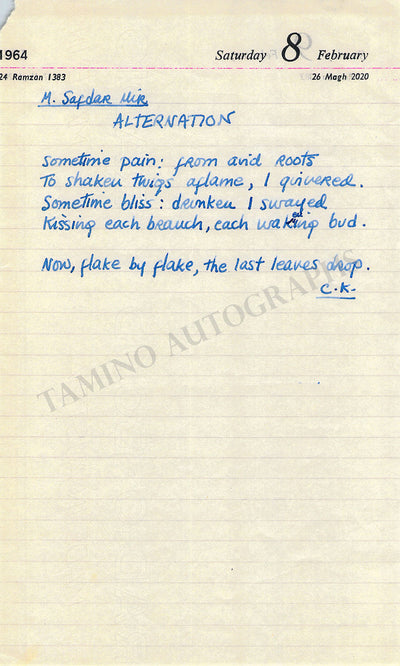 1964 Saturday 8 February
24 Ramzan 1383 26 Magh 2020
M. Safdar Mir
ALTERNATION
Sometime pain: from arid roots
To shaken twigs aflame, I quivered.
Sometime bliss: drunken I swayed
Kissing each branch, each waking bud.
Now, flake by flake, the last leaves drop.
C.K.
TAMINO AUTOGRAPHS